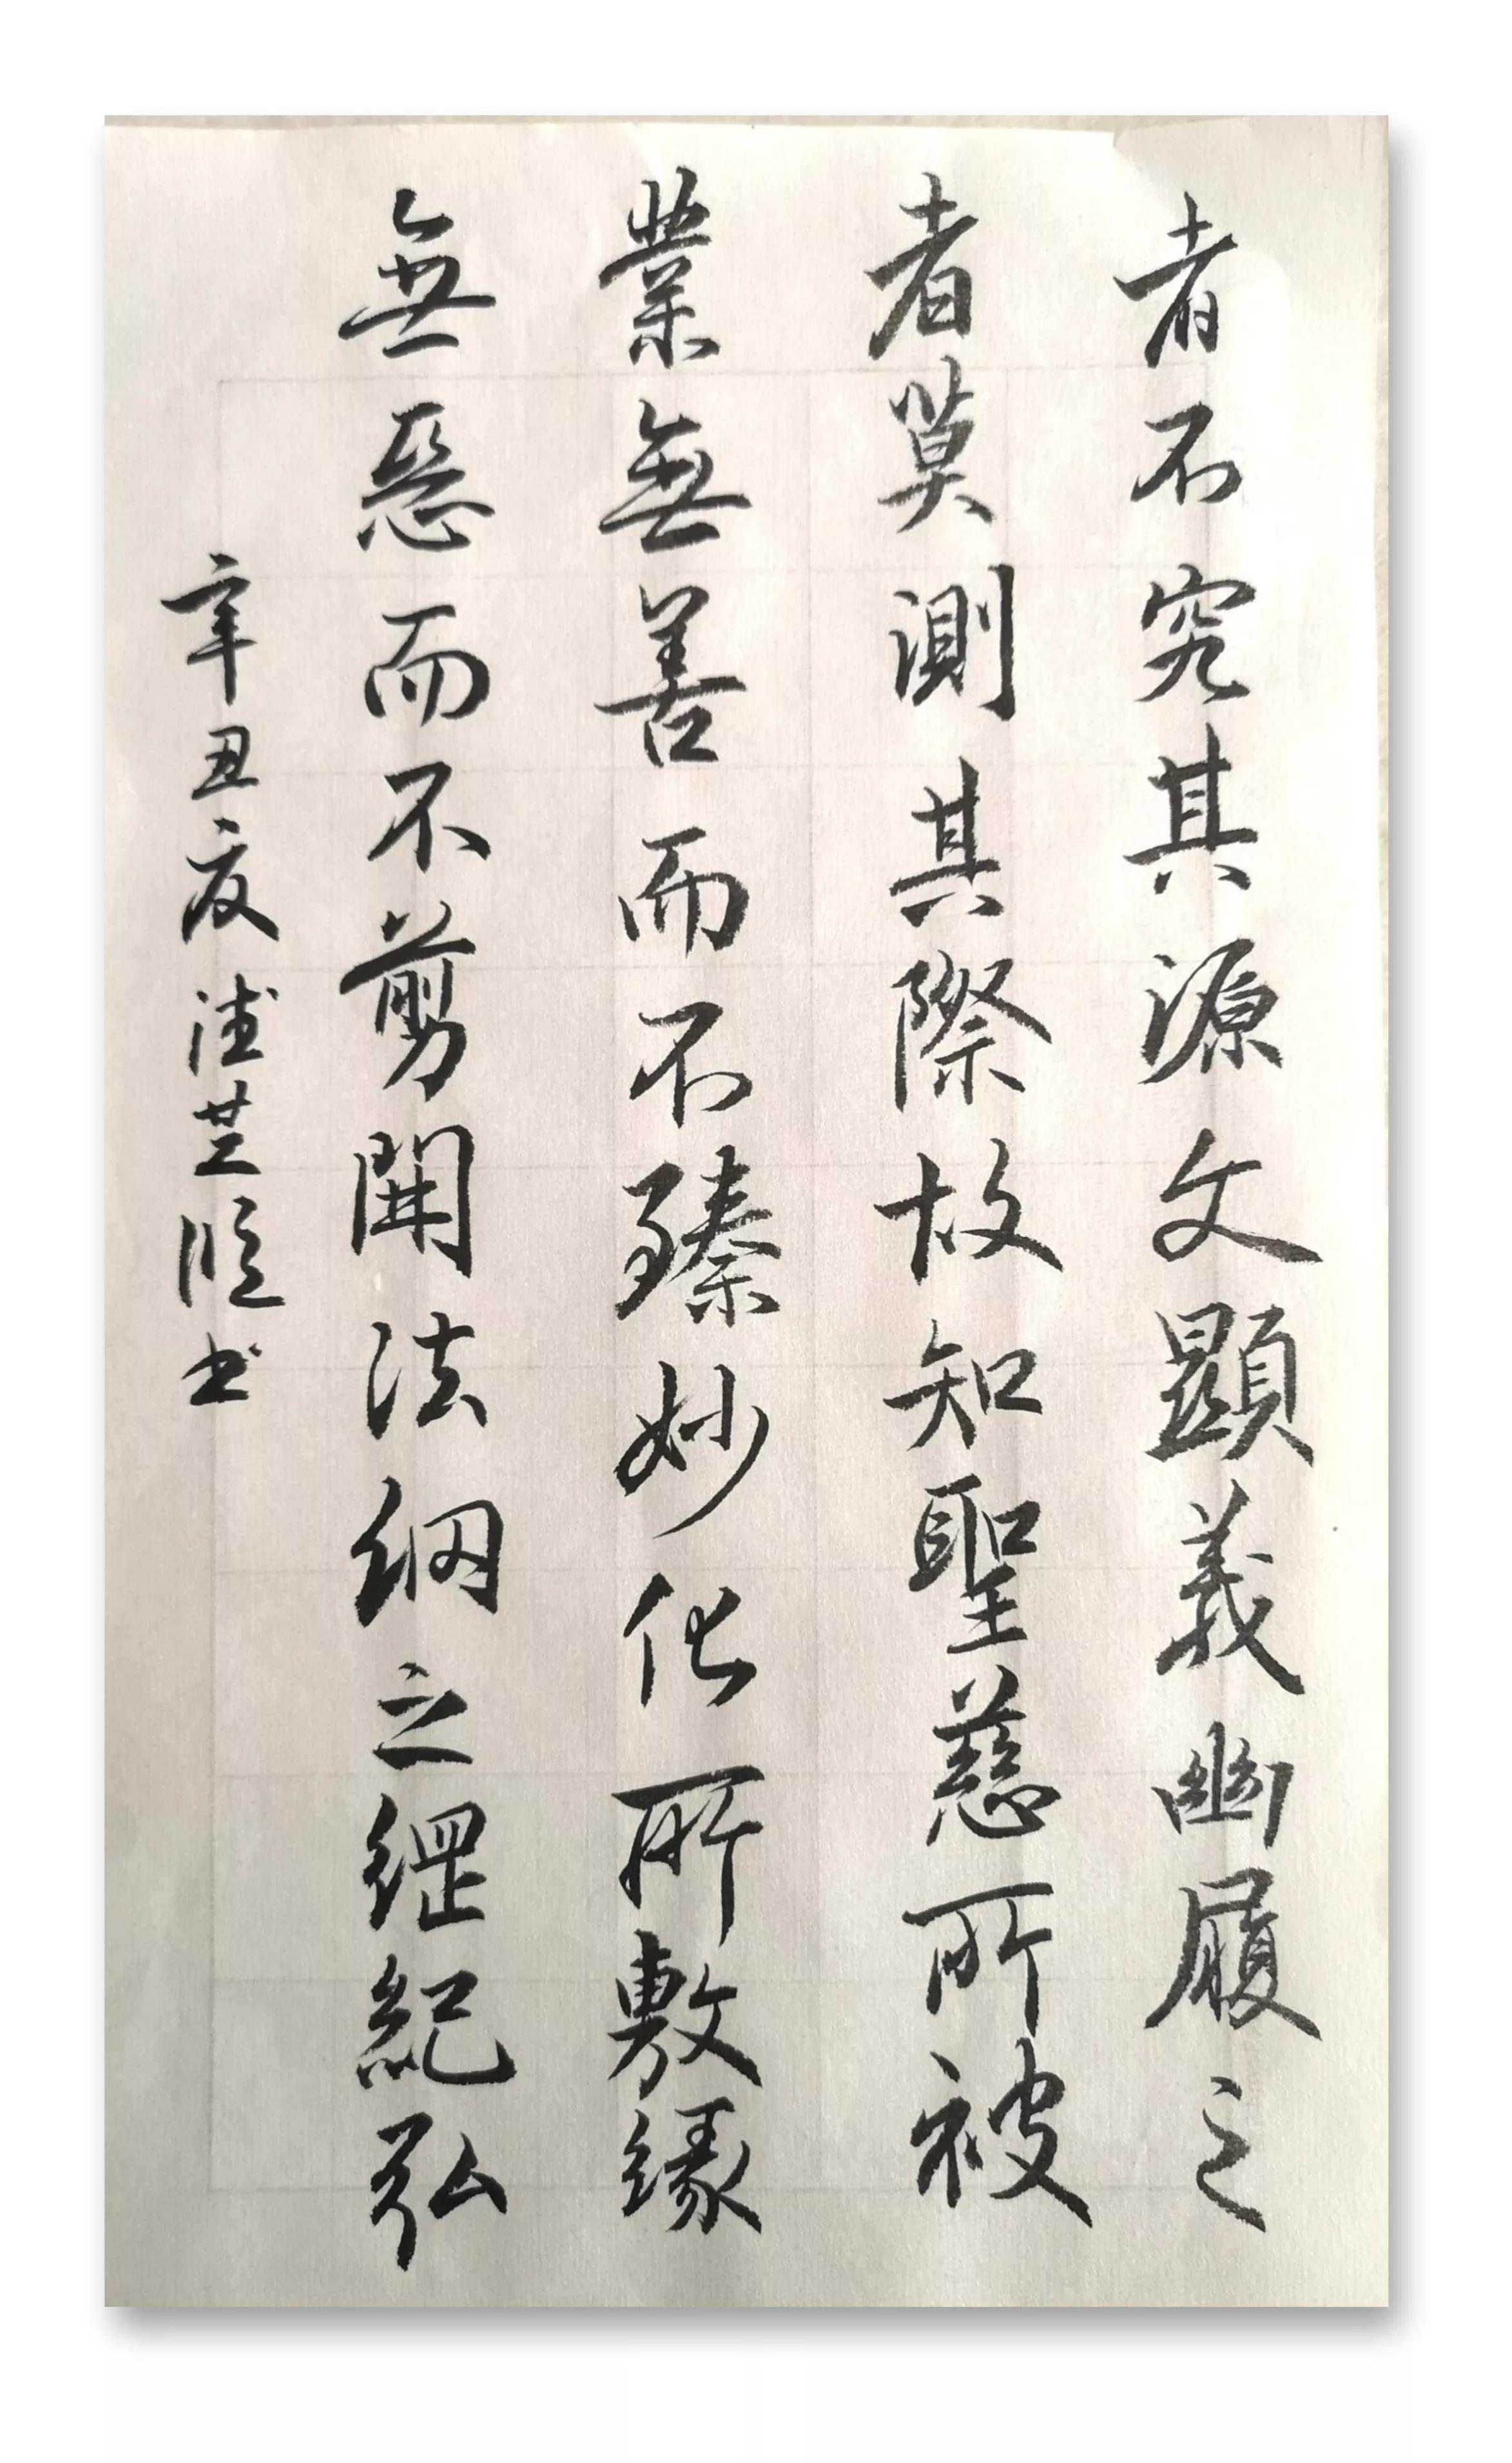 者不究其源文顯義幽履之
者莫測其際故知聖慈所被
業無善而不臻妙化所敷緣
無惡而不剪開法網之綱紀弘
辛丑夏 芝臨书